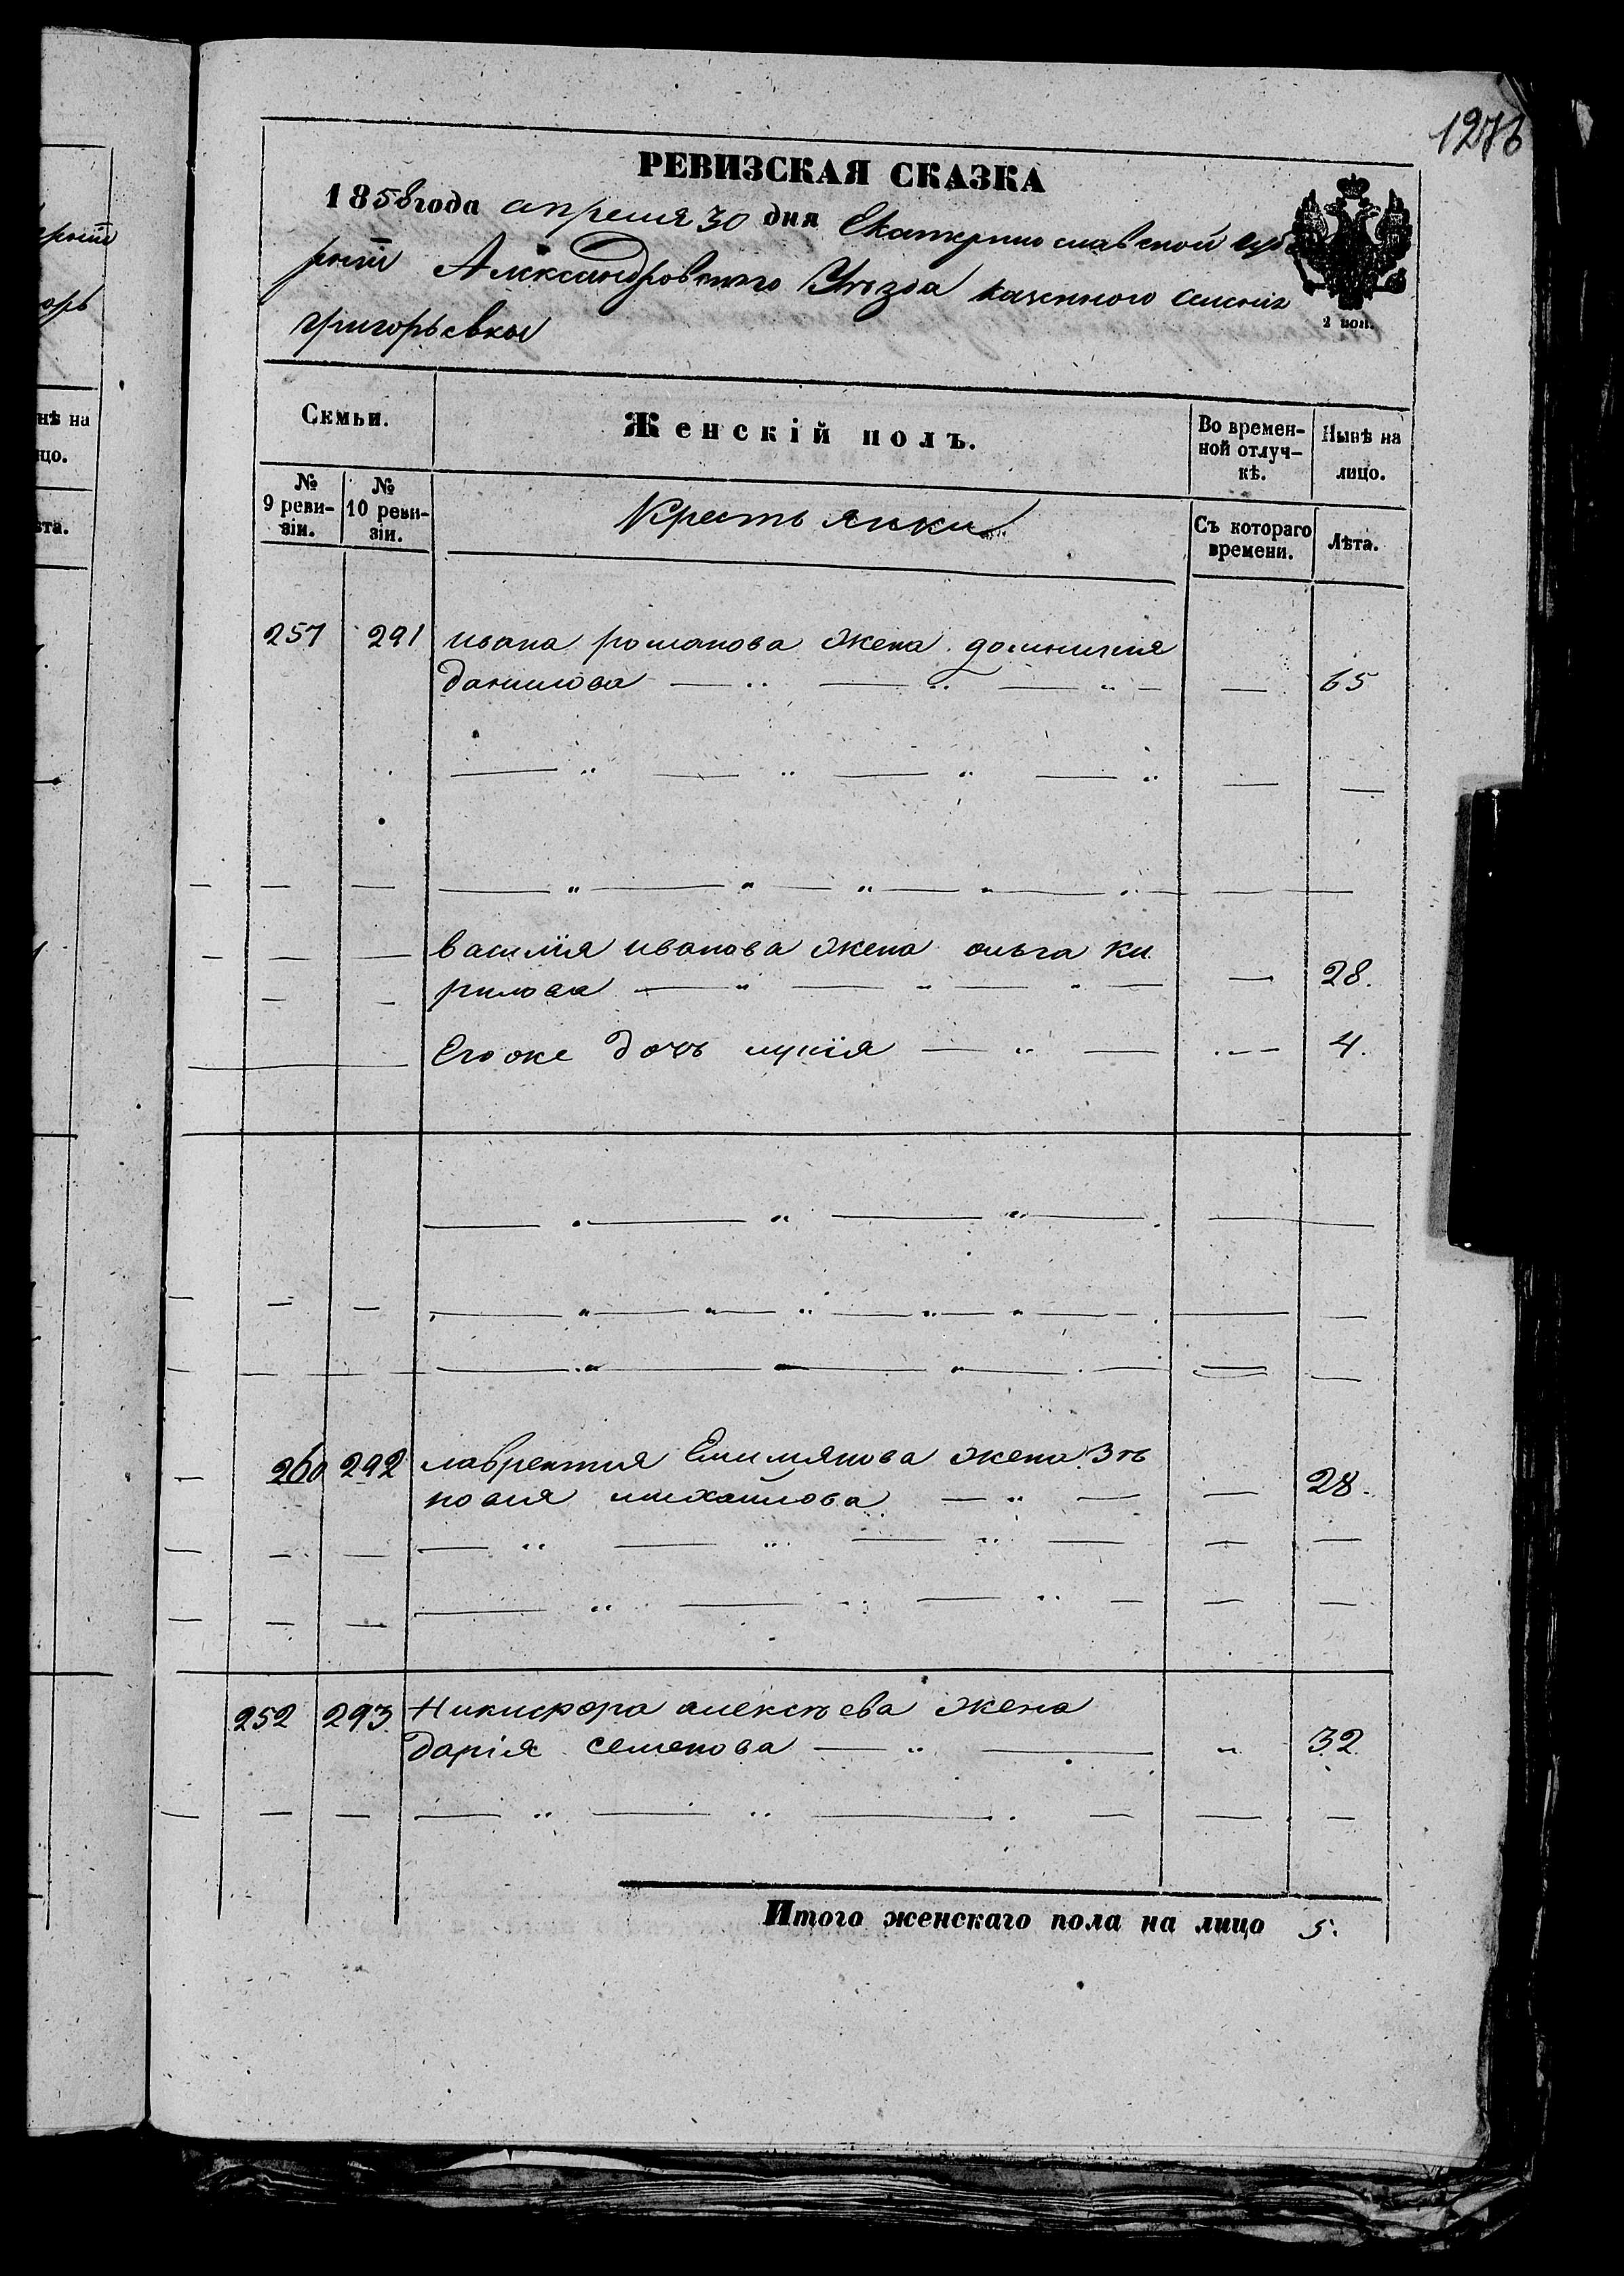 1276
РЕВИЗСКАЯ СКАЗКА
1858 года апреля 30 дня Екатеринославской губе
рніи Александровского Уѣзда казенного селенія
григорьевки
2 коп.
Семьи.
Женскій полъ.
Во времен-
ной отлуч-
кѣ.
Нынѣ на
лицо.
№
9 реви-
зіи.
№
10 реви-
зіи.
Крестьянки
Съ котораго
времени.
Лѣта.
257 291 ивана романова жена домникия
данилова — 65
василия иванова жена ольга ки
рилова — 28.
Его же дочь лукія — 4.
260 292 лаврентия Емилянова жена Зѣ
новия михайлова — 28.
252 293 Никифора алексѣева жена
дарія семенова — 32
Итого женскаго пола на лицо 5.
нѣ на
цо.
ѣта.